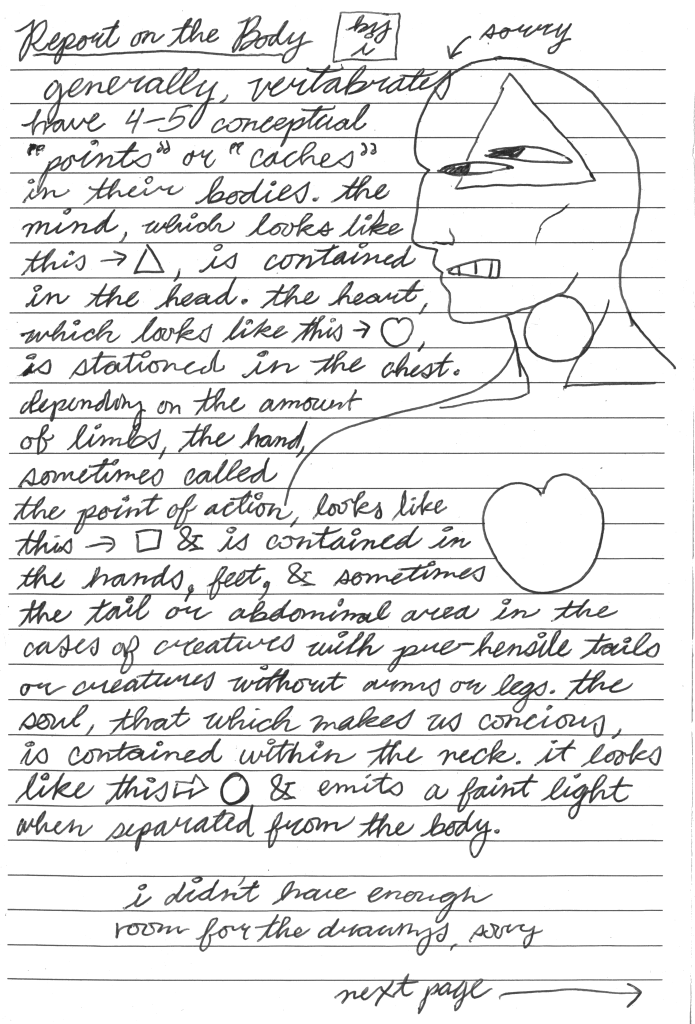 Report on the Body
by
i
sorry
generally, vertabrates
have 4-5 conceptual
"points" or "caches"
in their bodies. the
mind, which looks like
this → △, is contained
in the head. the heart,
which looks like this → ♡,
is stationed in the chest.
depending on the amount
of limbs, the hand,
sometimes called
the point of action, looks like
this → □ & is contained in
the hands, feet, & sometimes
the tail or abdominal area in the
cases of creatures with pre-hensile tails
or creatures without arms or legs. the
soul, that which makes us concious,
is contained within the neck. it looks
like this ⇨ ○ & emits a faint light
when separated from the body.
i didn't have enough
room for the drawings, sorry
next page →